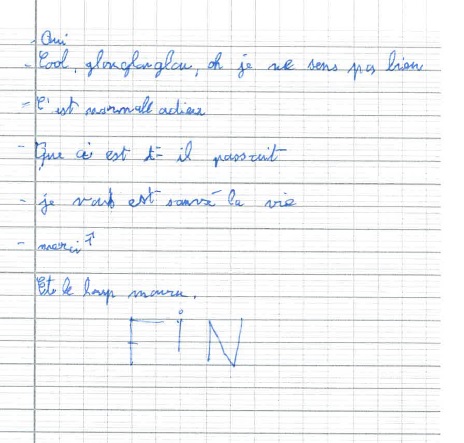 - Oui
- Cool, glouglouglou, oh je ne sens pas bien
- C'est normall adieu
- Que a est t-il passait
- je vous est sauvé la vie
- merci
Et le loup mouru.
FIN